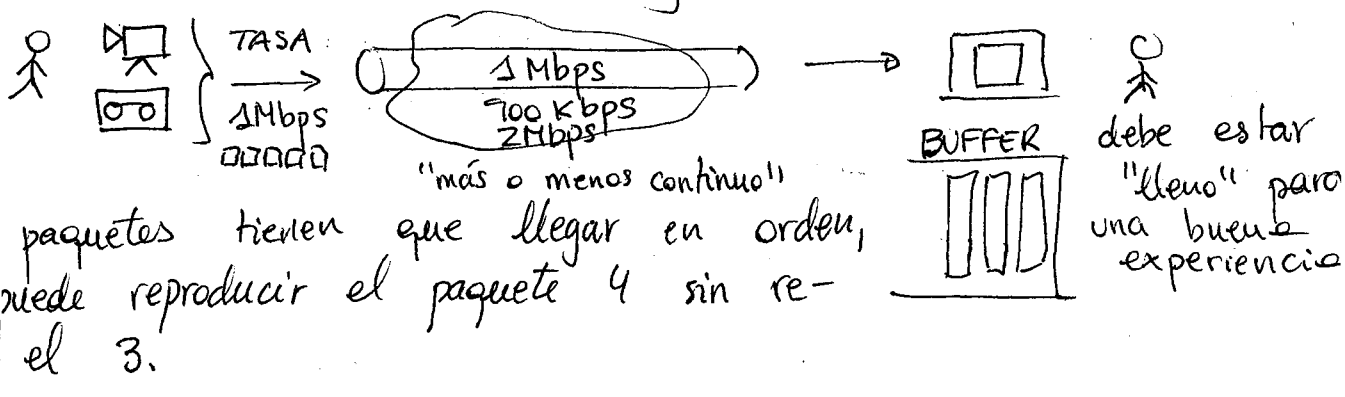 TASA
1Mbps
1 Mbps
900 Kbps
2Mbps
"más o menos continuo"
BUFFER
debe estar
"lleno" para
una buena
experiencia
paquetes tienen que llegar en orden,
puede reproducir el paquete 4 sin re-
el 3.